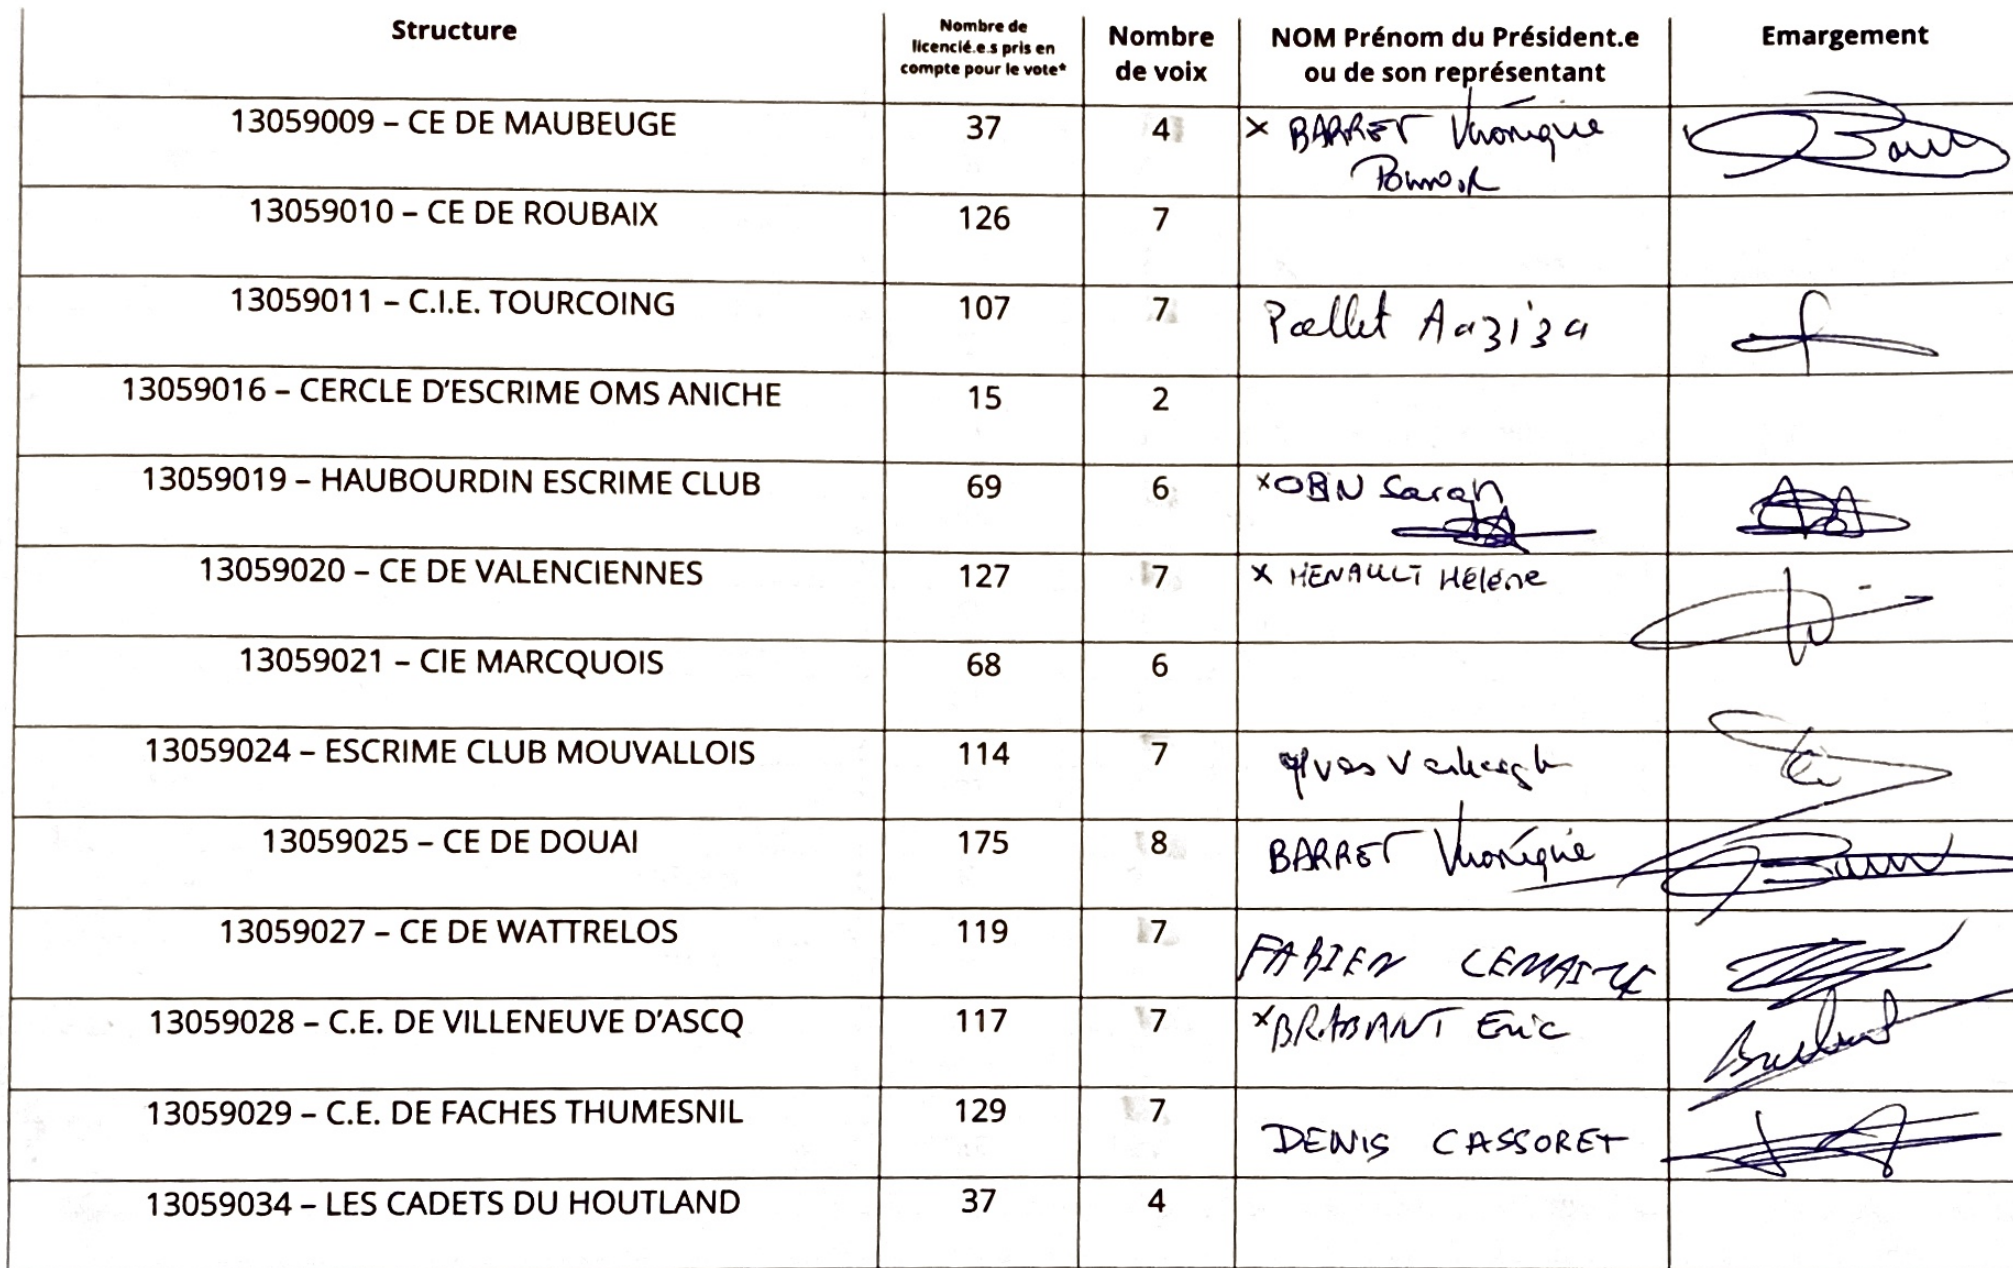 Structure
Nombre de licencié.e.s pris en compte pour le vote*
Nombre de voix
NOM Prénom du Président.e ou de son représentant
Emargement
13059009 – CE DE MAUBEUGE 37 4 x BARRET Véronique
13059010 – CE DE ROUBAIX 126 7
13059011 – C.I.E. TOURCOING 107 7 Aaziza
13059016 – CERCLE D'ESCRIME OMS ANICHE 15 2
13059019 – HAUBOURDIN ESCRIME CLUB 69 6 x OBIN Sarah
13059020 – CE DE VALENCIENNES 127 7 x HENAULT Hélène
13059021 – CIE MARCQUOIS 68 6
13059024 – ESCRIME CLUB MOUVALLOIS 114 7 Yves
13059025 – CE DE DOUAI 175 8 BARRET Véronique
13059027 – CE DE WATTRELOS 119 7 FABIEN LEMAIRE
13059028 – C.E. DE VILLENEUVE D'ASCQ 117 7 x BRABANT Eric
13059029 – C.E. DE FACHES THUMESNIL 129 7 DENIS CASSORET
13059034 – LES CADETS DU HOUTLAND 37 4